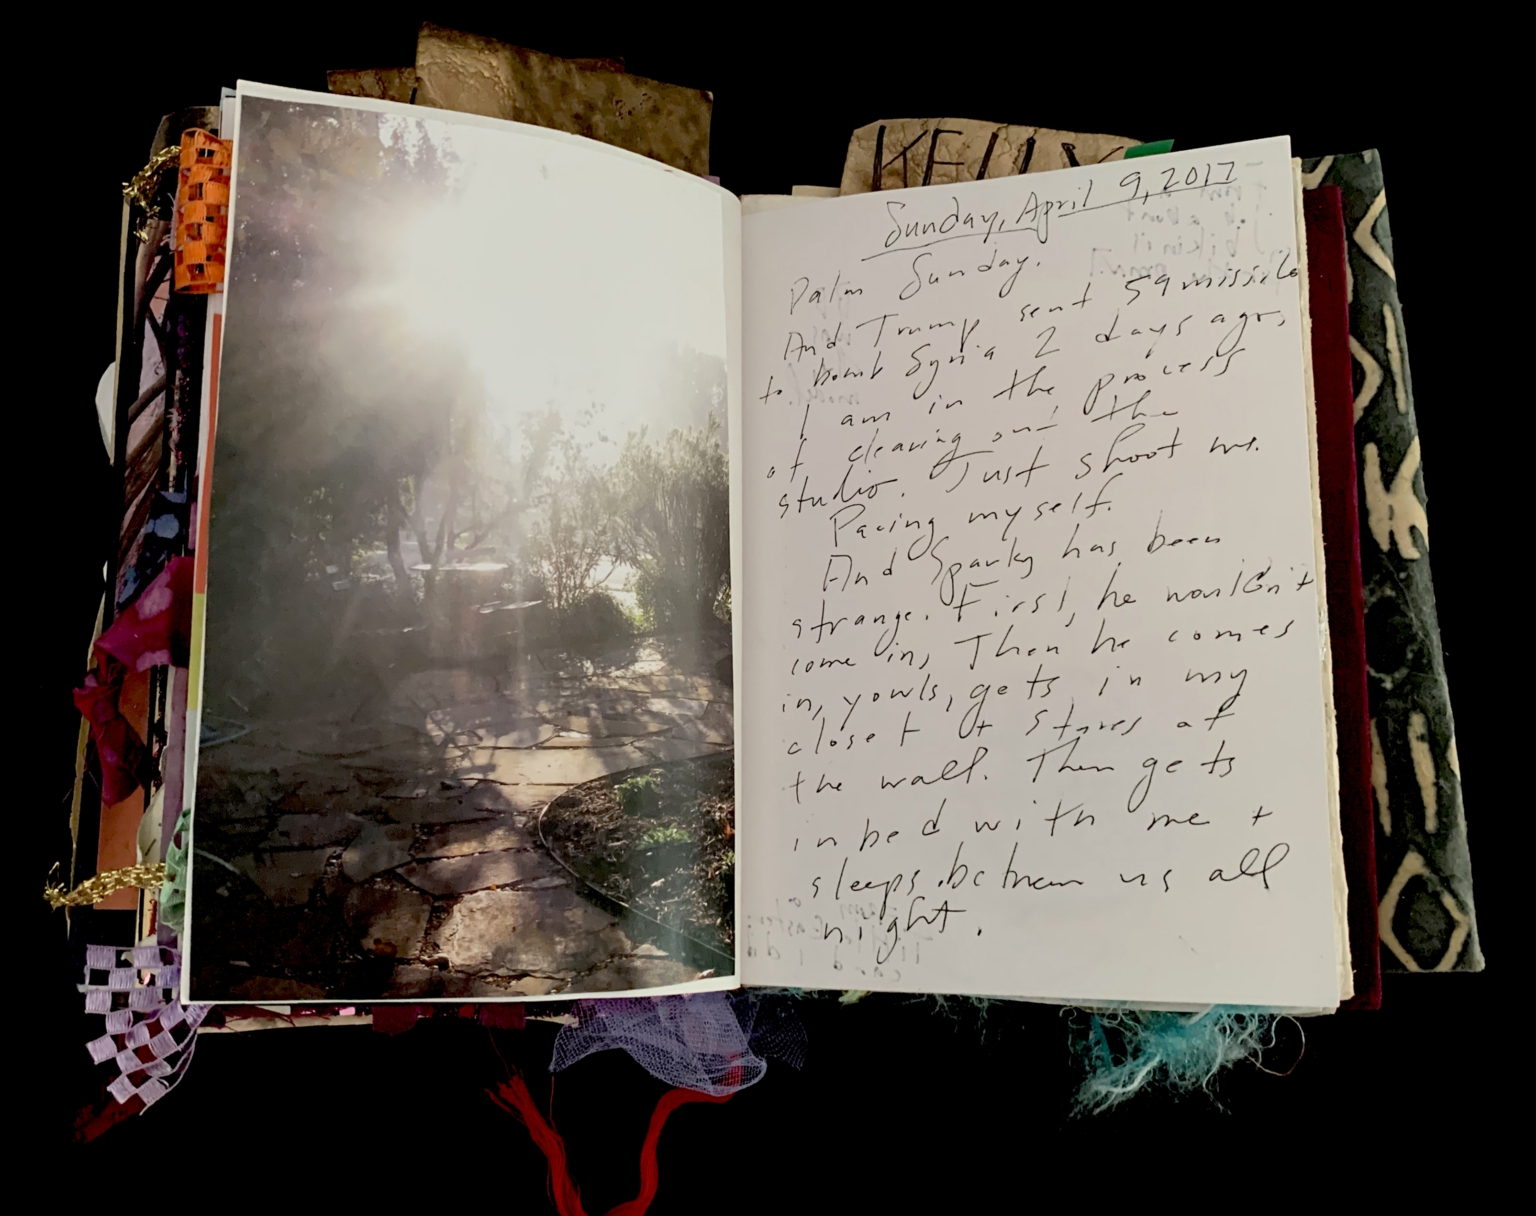 KELLY
Sunday, April 9, 2017
Palm Sunday.
And Trump sent 59 missile
to bomb Syria 2 days ago,
I am in the process
of cleaning out the
studio. Just shoot me.
Pacing myself.
And Sparky has been
strange. First, he wouldn't
come in, Then he comes
in, yowls, gets in my
closet + stares at
the wall. Then gets
in bed with me +
sleeps between us all
night.